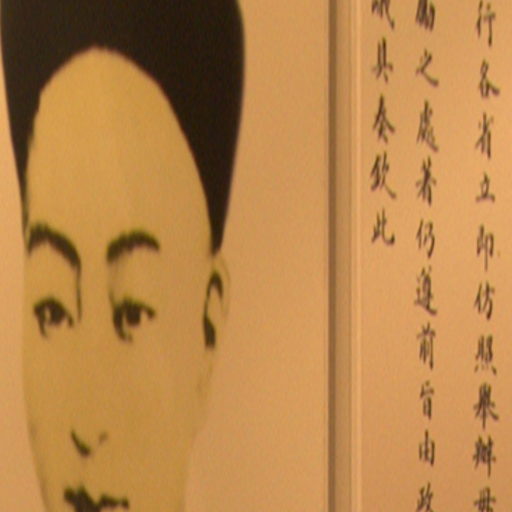 行各省立即仿照舉辦毋
勵之處著仍遵前旨由政
議具奏欽此